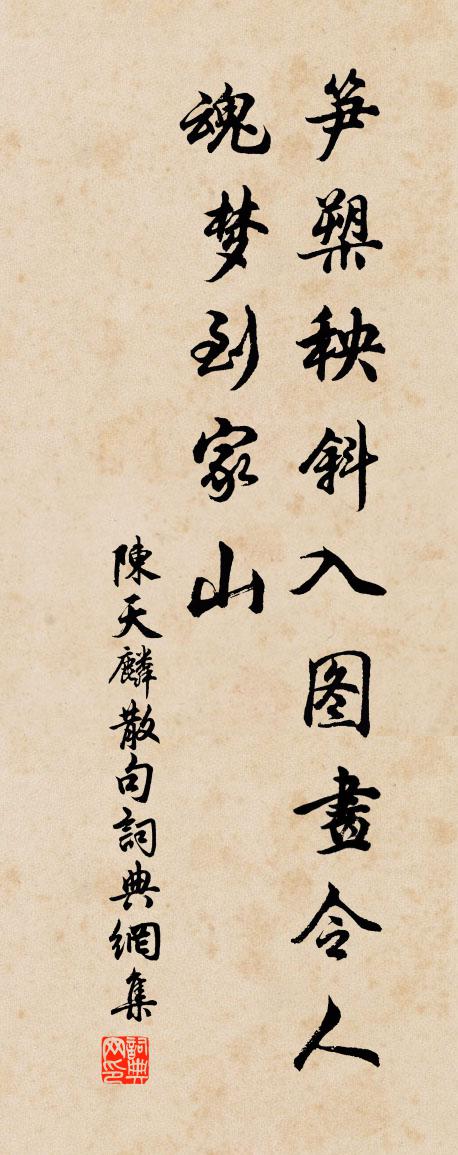 笋槊秧斜入图畫令人
魂梦到家山
陳天麟散句詞典網集
詞典
网印